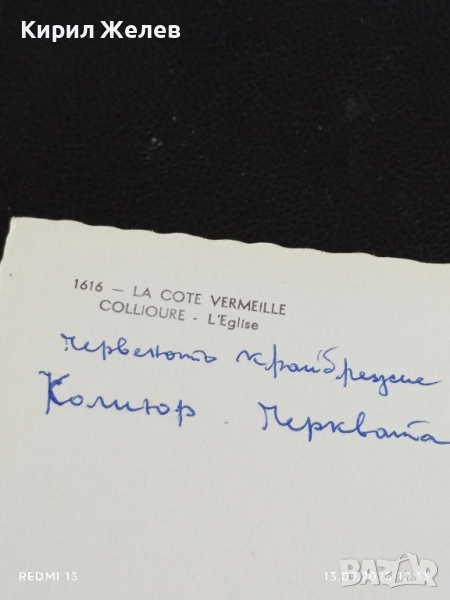 Кирил Желев
1616 — LA COTE VERMEILLE
COLLIOURE - L'Eglise
червеютъ крайбрежие
Колиюр. Черквата
REDMI 13
BAZAR